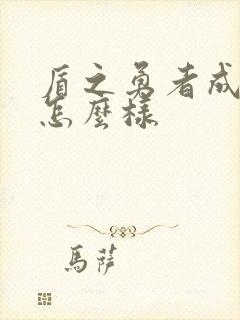 盾之勇者成
怎麼樣
馬薩